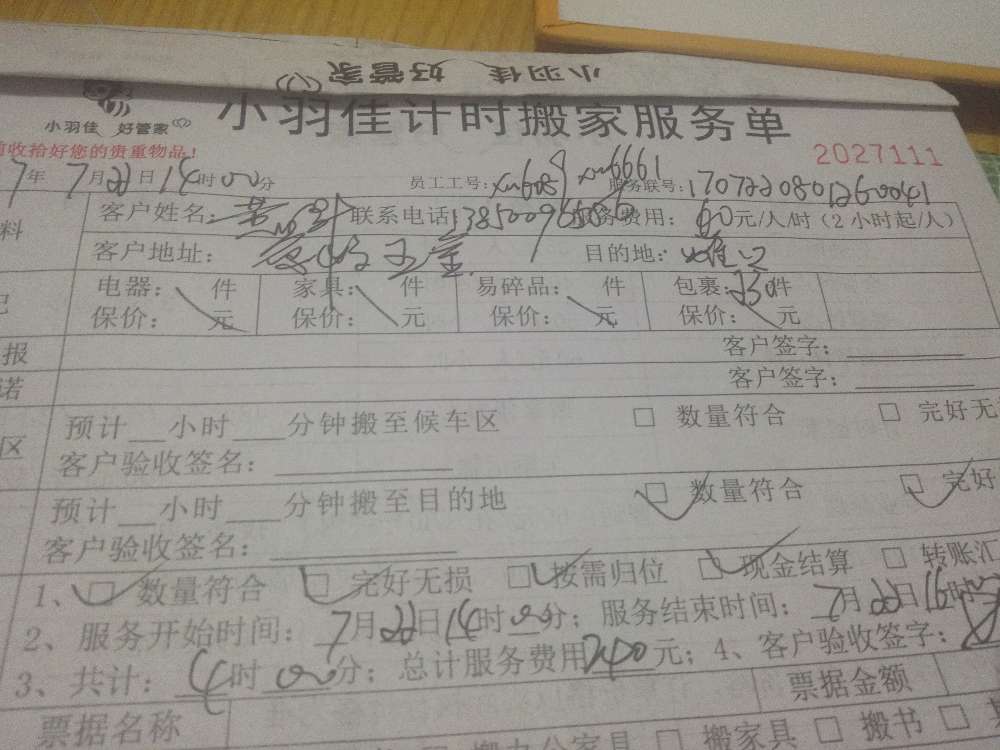 小羽佳 好管家
小羽佳 好管家
小羽佳计时搬家服务单
前收拾好您的贵重物品!
2027111
7年7月22日14时00分 员工工号: 服务联号:17072208012600041
料
客户姓名: 联系电话: 服务费用:60元/人/时(2小时起/人)
客户地址: 目的地:
记
电器: 件 家具: 件 易碎品: 件 包裹:30件
保价: 元 保价: 元 保价: 元 保价: 元
报 客户签字:
诺 客户签字:
区
预计 小时 分钟搬至候车区 数量符合 完好无
客户验收签名:
预计 小时 分钟搬至目的地 数量符合 完好
客户验收签名:
1、 数量符合 完好无损 按需归位 现金结算 转账汇
2、服务开始时间:7月22日14时00分;服务结束时间:7月22日16时
3、共计:4时00分;总计服务费用240元;4、客户验收签字:
票据名称 票据金额
搬办公家具 搬家具 搬书